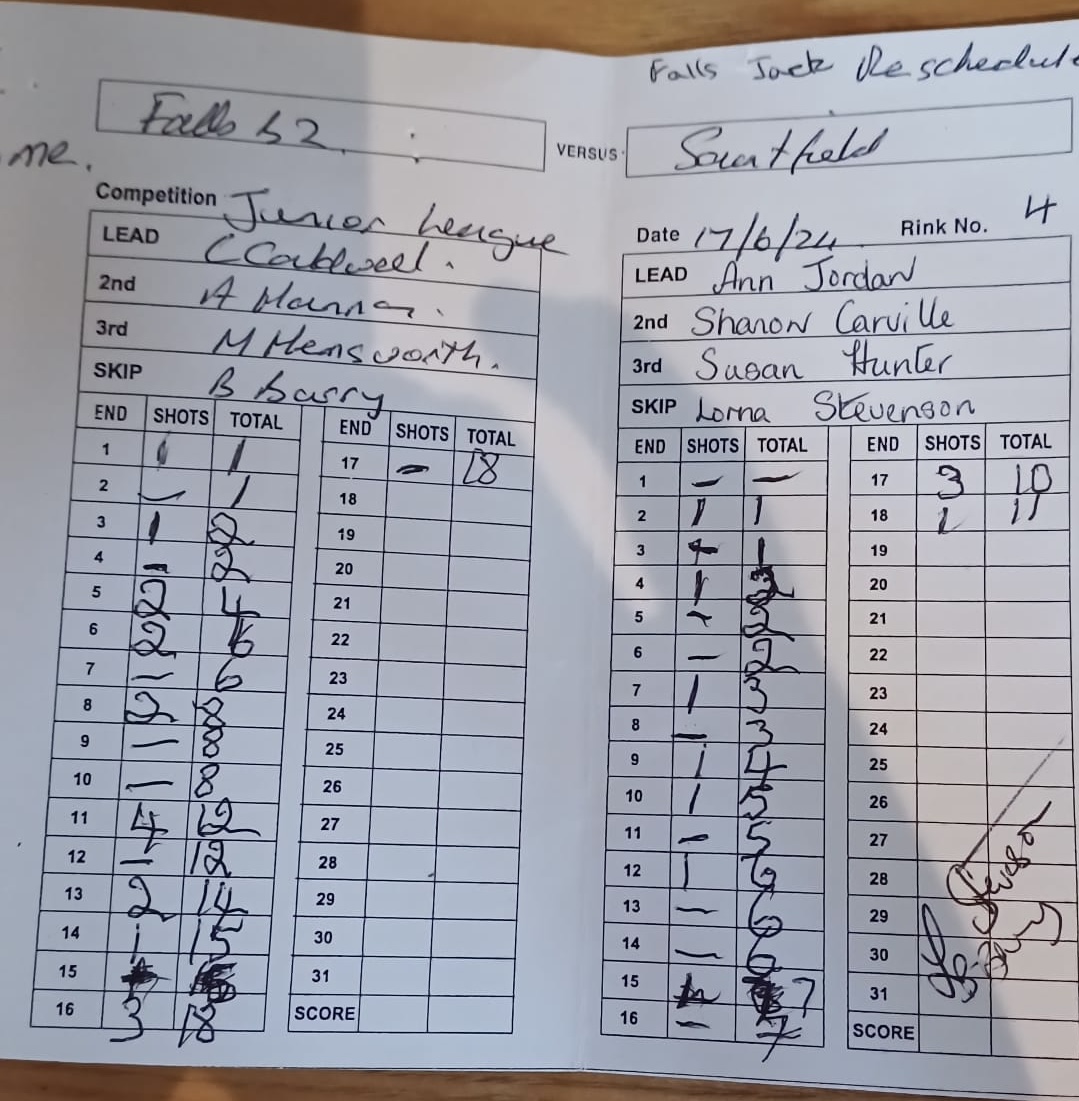 Falls Jack Reschedule
Falls b2 VERSUS Saintfield
me.
Competition Junior League
Date 17/6/24 Rink No. 4
LEAD C Cabwell.
2nd A Hanna.
3rd M Hensworth.
SKIP B Barry
LEAD Ann Jordan
2nd Sharon Carville
3rd Susan Hunter
SKIP Lorna Stevenson
END SHOTS TOTAL END SHOTS TOTAL
1 1 1 17 - 18
2 - 1 18
3 1 2 19
4 - 2 20
5 2 4 21
6 2 6 22
7 - 6 23
8 2 8 24
9 - 8 25
10 - 8 26
11 4 12 27
12 - 12 28
13 2 14 29
14 1 15 30
15 31
16 3 18 SCORE
END SHOTS TOTAL END SHOTS TOTAL
1 - - 17 3 10
2 1 1 18 1 11
3 - 1 19
4 1 2 20
5 - 2 21
6 - 2 22
7 1 3 23
8 - 3 24
9 1 4 25
10 1 5 26
11 - 5 27
12 1 6 28
13 - 6 29
14 - 6 30
15 1 7 31
16 - 7 SCORE
L Stevenson
B. Barry